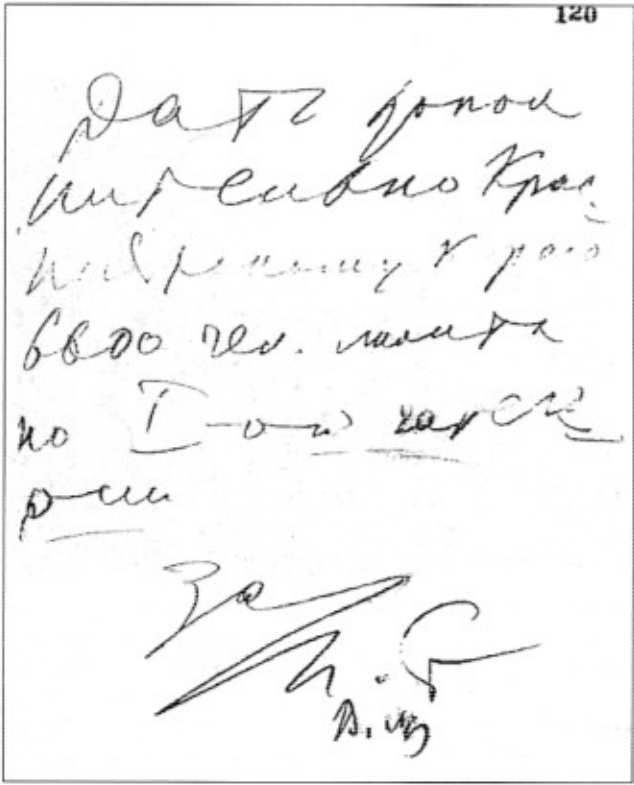 120
Дать допол
нительно Крас
ноярскому краю
6600 чел. лимита
по I-ой катего
рии
За
И. Ст